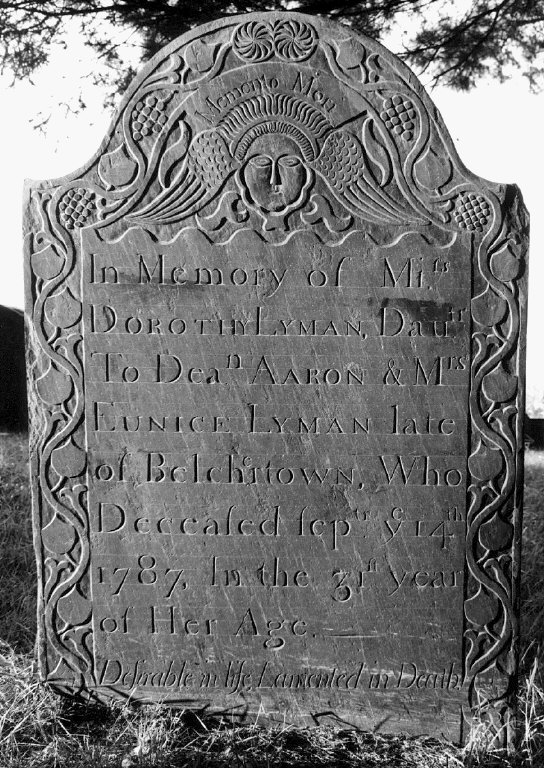 Memento Mori
In Memory of Miſs
DOROTHY LYMAN, Dauᵗʳ
To Deaⁿ AARON & Mʳˢ
EUNICE LYMAN late
of Belchᵉrtown, Who
Deceaſed ſepᵗʳ yᵉ 14ᵗʰ
1787, In the 31ſᵗ year
of Her Age.
Deſirable in life, Lamented in Death